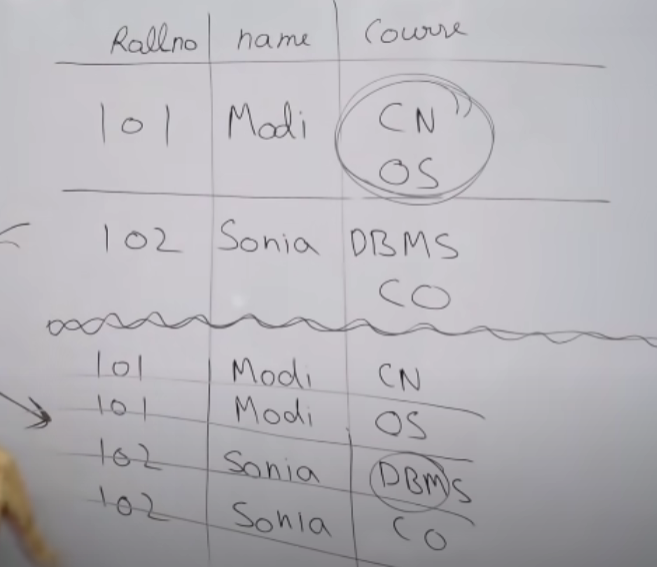 Rallno name Course
101 Modi CN
OS
102 Sonia DBMS
CO
101 Modi CN
101 Modi OS
102 Sonia DBMS
102 Sonia CO